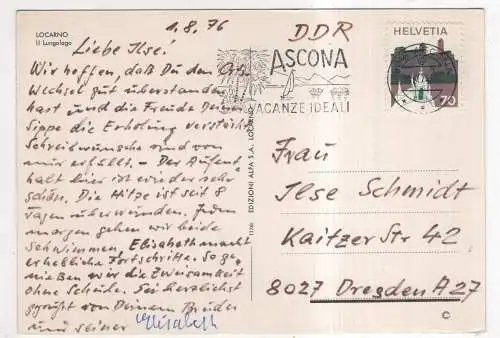 LOCARNO
Il Lungolago
1.8.76
Liebe Ilse!
Wir hoffen, daß Du den Orts-
Wechsel gut überstanden
hast und die Freude Deiner
Sippe die Erholung verstärkt.
Schreibwünsche sind von
mir erfüllt. – Der Aufent
halt hier ist wieder sehr
schön. Die Hitze ist seit 8
Tagen überwunden. Jeden
morgen gehen wir beide
schwimmen, Elisabeth macht
erhebliche Fortschritte. So ge
nießen wir die Zweisamkeit
ohne Schule. Sei herzlichst
gegrüßt von Deinem Bruder
und seiner Elisabeth
EDIZIONI ALFA S.A. LOCARNO
DDR
ASCONA
VACANZE IDEALI
HELVETIA
70
Frau
Ilse Schmidt
Kaitzer Str 42
8027 Dresden A27
C